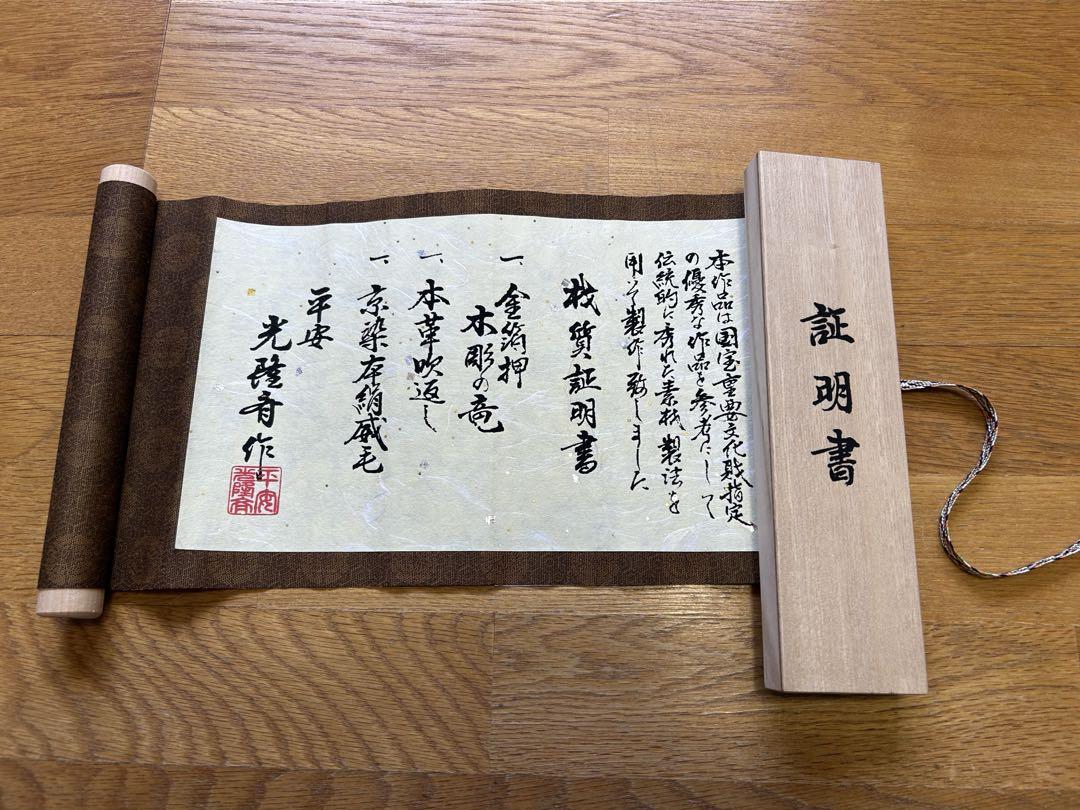 証明書
本作品は国宝重要文化財指定
の優秀な作品を参考にして
伝統的に秀れた素材製法を
用いて製作致しました
材質証明書
一、金箔押
木彫の竜
一、本革吹返し
一、京染本絹威毛
平安
光隆斉作
平安
光隆斉